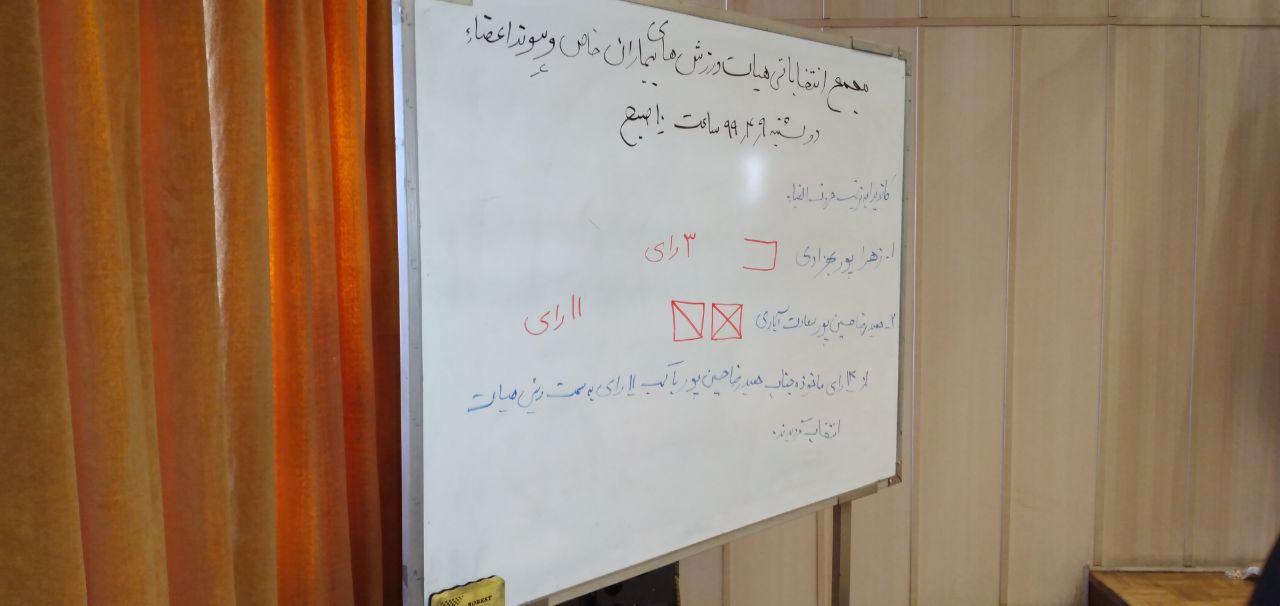 مجمع انتخاباتی هیات ورزش های بیماران خاص و پیوند اعضاء
دوشنبه ۹۹،۴،۹ ساعت ۱۰ صبح
کاندیدا به ترتیب حروف الفباء
۱. زهرا پور بهزادی ۳ رای
۲- حمیدرضا حسین پور سعادت آبادی ۱۱ رای
از ۱۴ رای ماخوذه جناب حمیدرضا حسین پور با کسب ۱۱ رای به سمت رئیس هیات
انتخاب گردیدند.
ROBEST